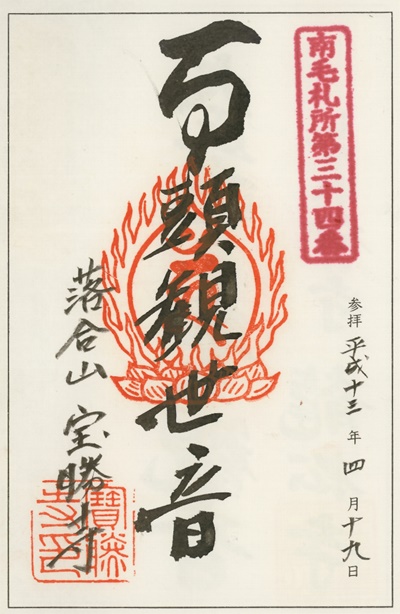 南毛札所第三十四番
参拝 平成十三年 四月 十九日
馬頭観世音
落合山 宝勝寺